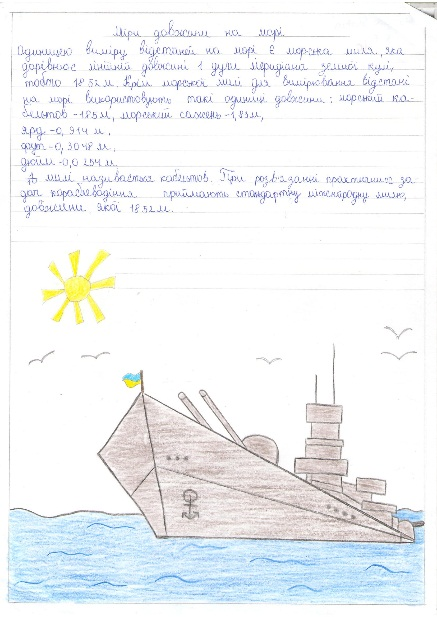 Міри довжини на морі
Одиницею виміру відстаней на морі є морська миля, яка
дорівнює лінійній довжині 1 дуги меридіана земної кулі,
тобто 1852 м. Крім морської милі для вимірювання відстані
на морі використовують такі одиниці довжини: морський ка-
бельтов -185 м, морський сажень -1,83 м,
ярд -0,914 м,
фут -0,3048 м,
дюйм -0,0254 м.
милі називається кабельтов. При розв'язанні практичних за
дач кораблеводіння приймають стандартну міжнародну милю,
довжини якої 1852 м.